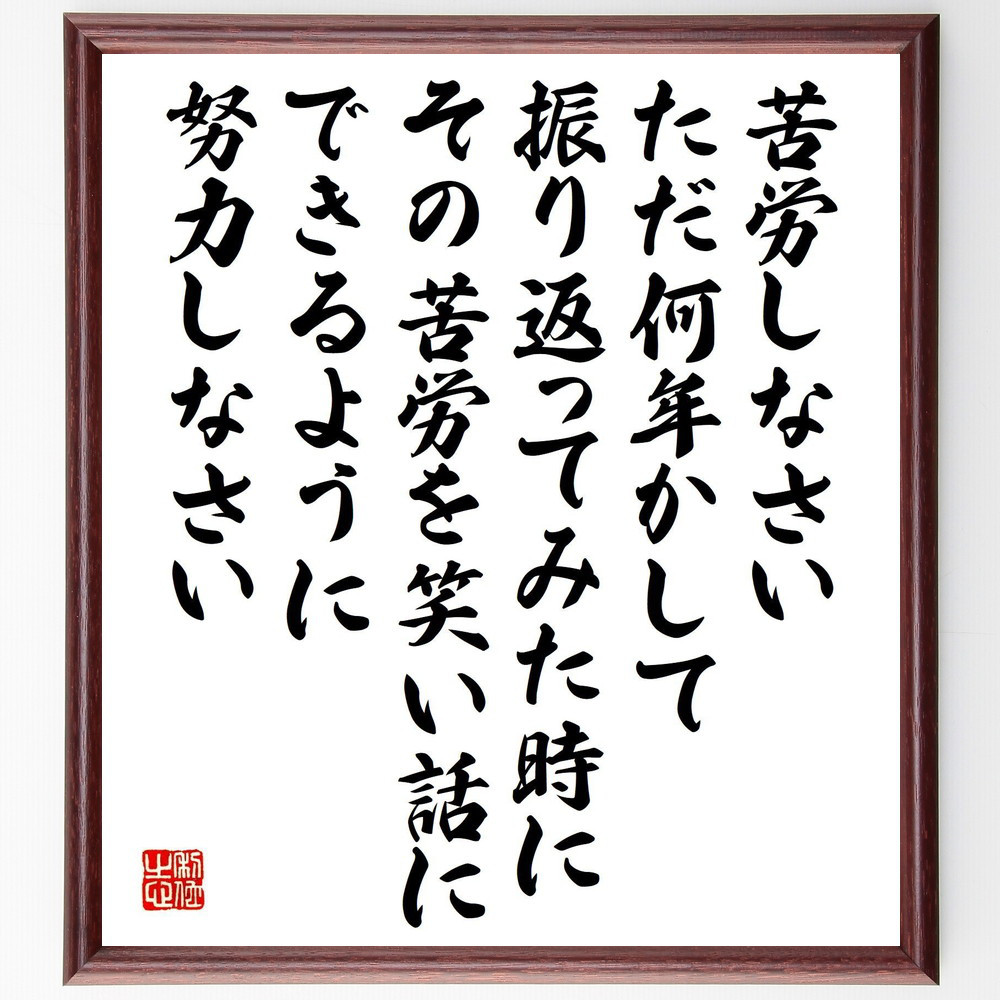 苦労しなさい
ただ何年かして
振り返ってみた時に
その苦労を笑い話に
できるように
努力しなさい